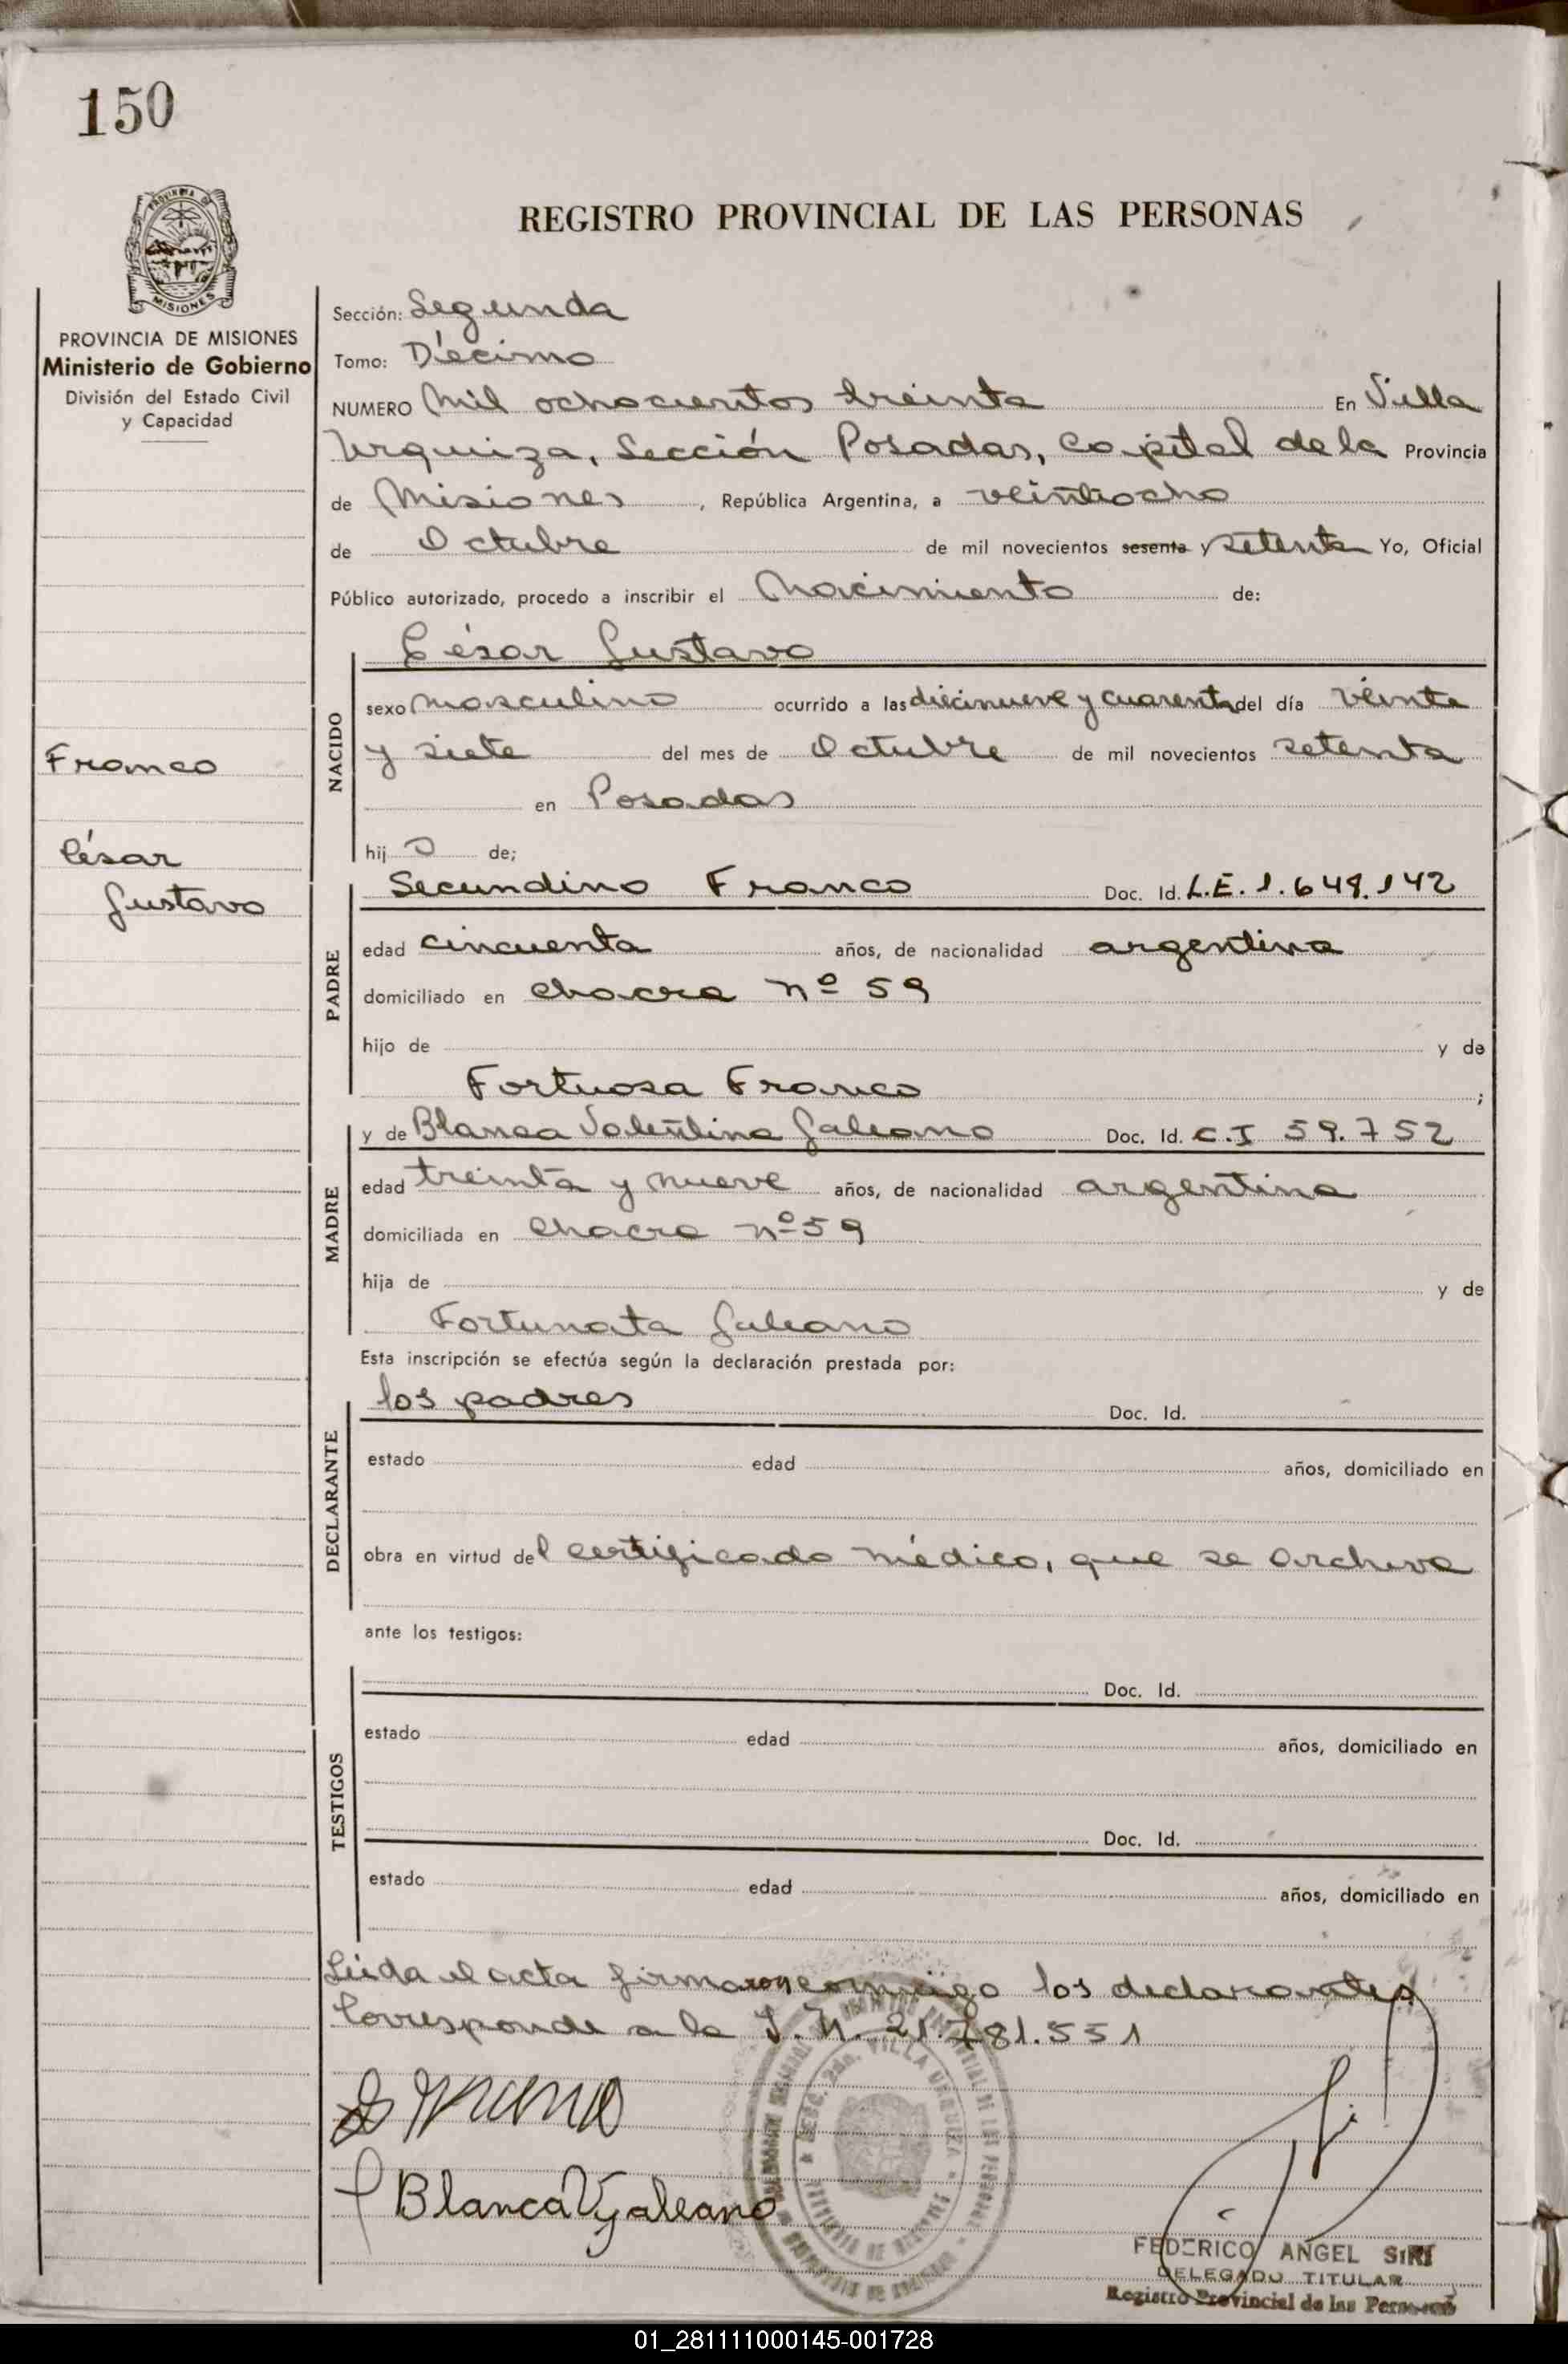 150
PROVINCIA DE
MISIONES
PROVINCIA DE MISIONES
Ministerio de Gobierno
División del Estado Civil
y Capacidad
Franco
César
Gustavo
REGISTRO PROVINCIAL DE LAS PERSONAS
Sección: Segunda
Tomo: Décimo
NUMERO Mil ochocientos treinta En Villa
Urquiza, Sección Posadas, Capital de la Provincia
de Misiones, República Argentina, a veintiocho
de Octubre de mil novecientos sesenta y setenta Yo, Oficial
Público autorizado, procedo a inscribir el Nacimiento de:
César Gustavo
NACIDO
sexo masculino ocurrido a las diecinueve y cuarenta del día veinte
y siete del mes de Octubre de mil novecientos setenta
en Posadas
hij o de;
PADRE
Secundino Franco Doc. Id. L.E. 1.649.142
edad cincuenta años, de nacionalidad argentina
domiciliado en chacra nº 59
hijo de y de
Fortuosa Franco ;
MADRE
y de Blanca Valentina Galeano Doc. Id. C.I 59.752
edad treinta y nueve años, de nacionalidad argentina
domiciliada en chacra nº 59
hija de y de
Fortunata Galeano
Esta inscripción se efectúa según la declaración prestada por:
DECLARANTE
los padres Doc. Id.
estado edad años, domiciliado en
obra en virtud del certificado médico, que se archiva
ante los testigos:
TESTIGOS
Doc. Id.
estado edad años, domiciliado en
Doc. Id.
estado edad años, domiciliado en
Leída el acta firmaron conmigo los declarantes
Corresponde a la I.N. 21.781.551
VILLA URQUIZA
Blanca V Galeano
FEDERICO ANGEL SIRI
DELEGADO TITULAR
Registro Provincial de las Personas
01_281111000145-001728